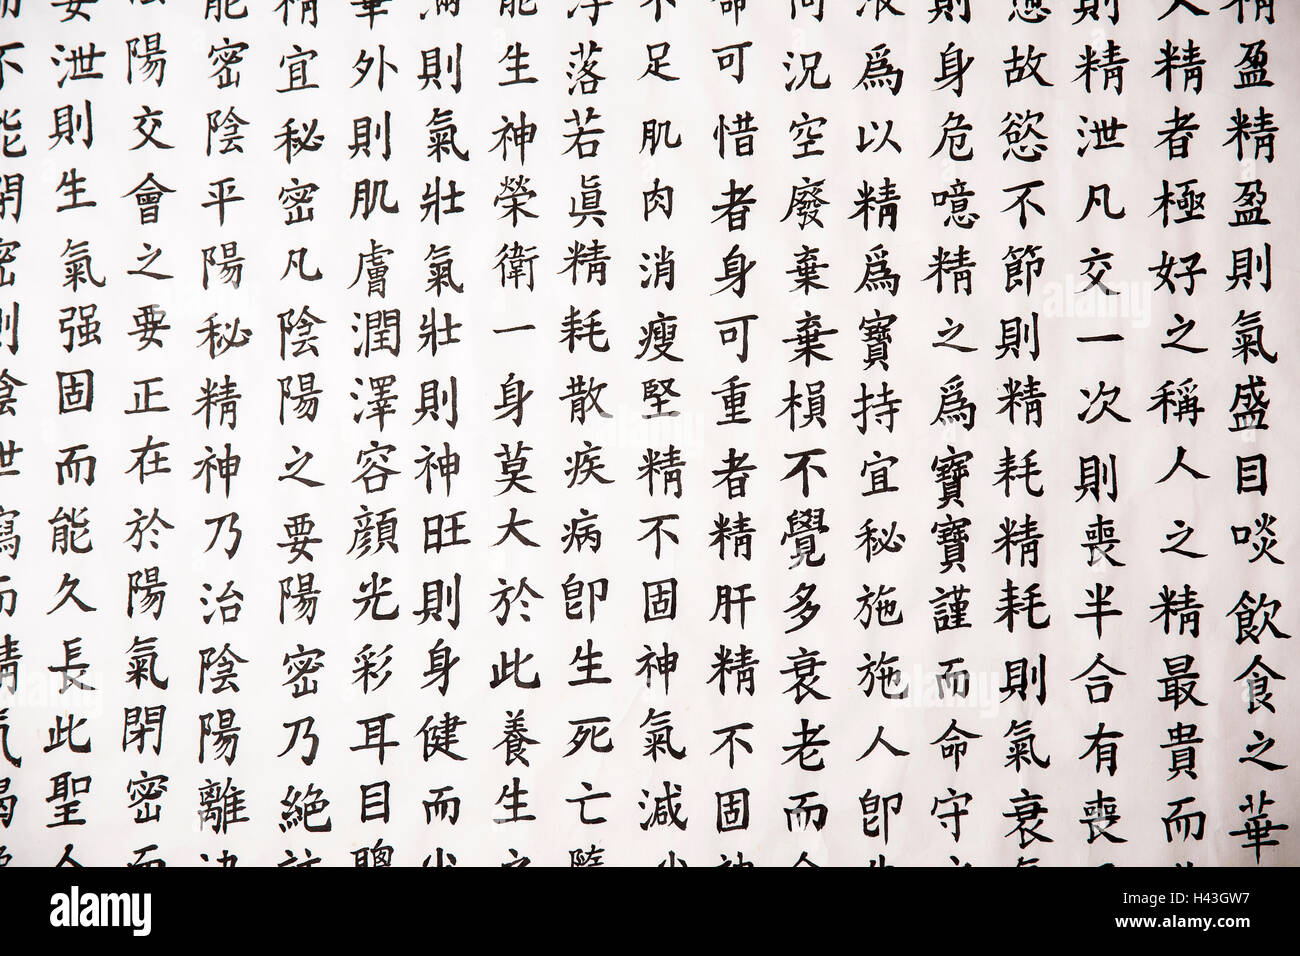 精盈精盈則氣盛目啖飲食之華
人精者極好之稱人之精最貴而
則精泄凡交一次則喪半合有喪
故慾不節則精耗精耗則氣衰
則身危噫精之爲寶寶謹而命守
液爲以精爲寶持宜秘施施人卽
何況空廢棄棄損不覺多衰老而
命可惜者身可重者精肝精不固
不足肌肉消瘦堅精不固神氣減
浮落若眞精耗散疾病卽生死亡
能生神榮衛一身莫大於此養生
滿則氣壯氣壯則神旺則身健而
華外則肌膚潤澤容顏光彩耳目聰
精宜秘密凡陰陽之要陽密乃絕
能密陰平陽秘精神乃治陰陽離決
陽交會之要正在於陽氣閉密而
要泄則生氣强固而能久長此聖人
不能閉密則陰泄寫而精氣竭
alamy
Image ID: H43GW7
www.alamy.com